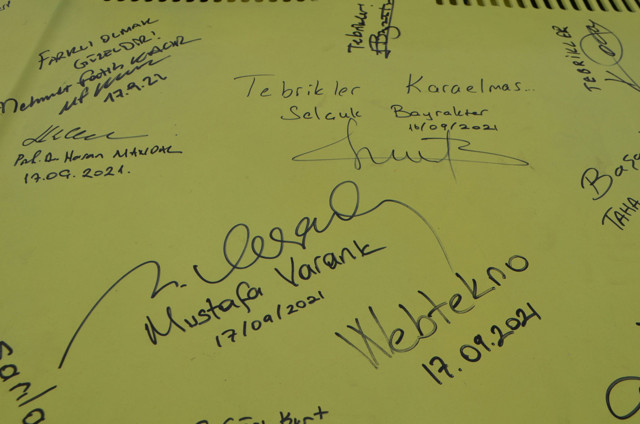 FARKLI OLMAK
GÜZELDİR!
Mehmet Fatih KACIR
17.9.21
Prof. Dr Hasan MANDAL
17.09.2021.
Tebrikleri
Tebrikler Karaelmas...
Selçuk Bayraktar
16/09/2021
TEBRİKLER
TAHA
Mustafa Varank
17/09/2021
Webtekno
17.09.2021